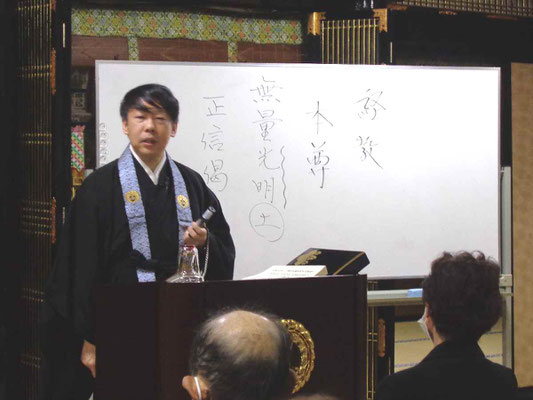 本尊
無量光明土
正信偈